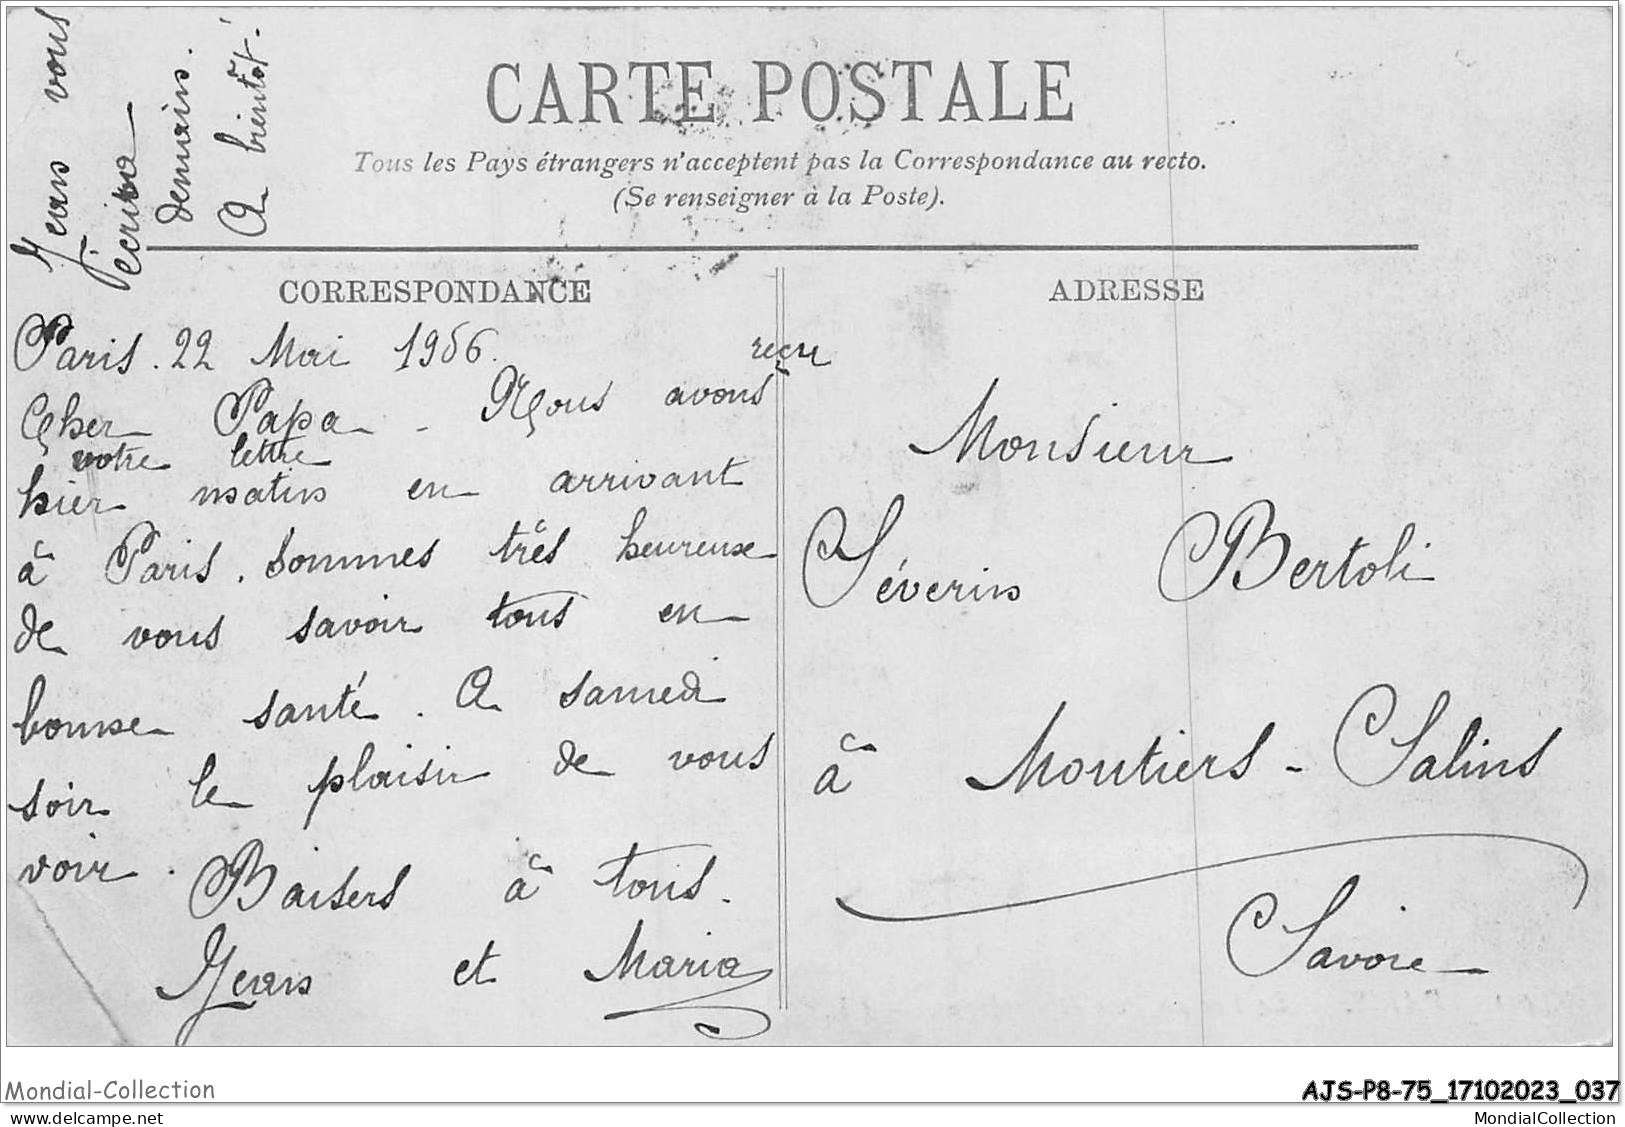 Jean vous
écrira
demain.
A bientôt.
CARTE POSTALE
Tous les Pays étrangers n'acceptent pas la Correspondance au recto.
(Se renseigner à la Poste).
CORRESPONDANCE
ADRESSE
Paris. 22 Mai 1906.
reçu
Cher Papa - Nous avons
votre lettre
hier matin en arrivant
à Paris. Sommes très heureuse
de vous savoir tous en
bonne santé. A samedi
soir le plaisir de vous
voir.
Baisers à tous.
Jean et Maria
Monsieur
Séverin Bertoli
à Moutiers-Salins
Savoie
Mondial-Collection
AJS-P8-75_17102023_037
delcampe.net
MondialCollection